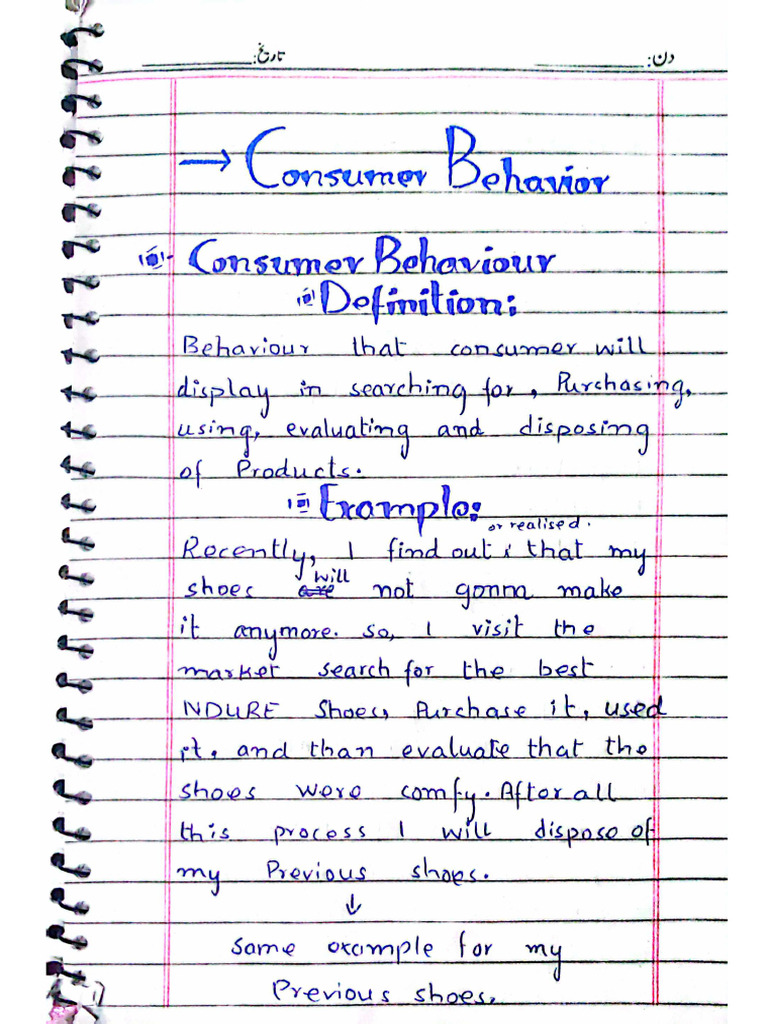 دن: تاریخ:
→ Consumer Behavior
Consumer Behaviour
Definition:
Behaviour that consumer will
display in searching for, Purchasing,
using, evaluating and disposing
of Products.
Example:
or realised.
Recently, I find out that my
shoes are will not gonna make
it anymore. so, I visit the
market search for the best
NDURE Shoes, Purchase it, used
it, and than evaluate that the
shoes were comfy. After all
this process I will dispose of
my Previous shoes.
↓
Same example for my
Previous shoes.